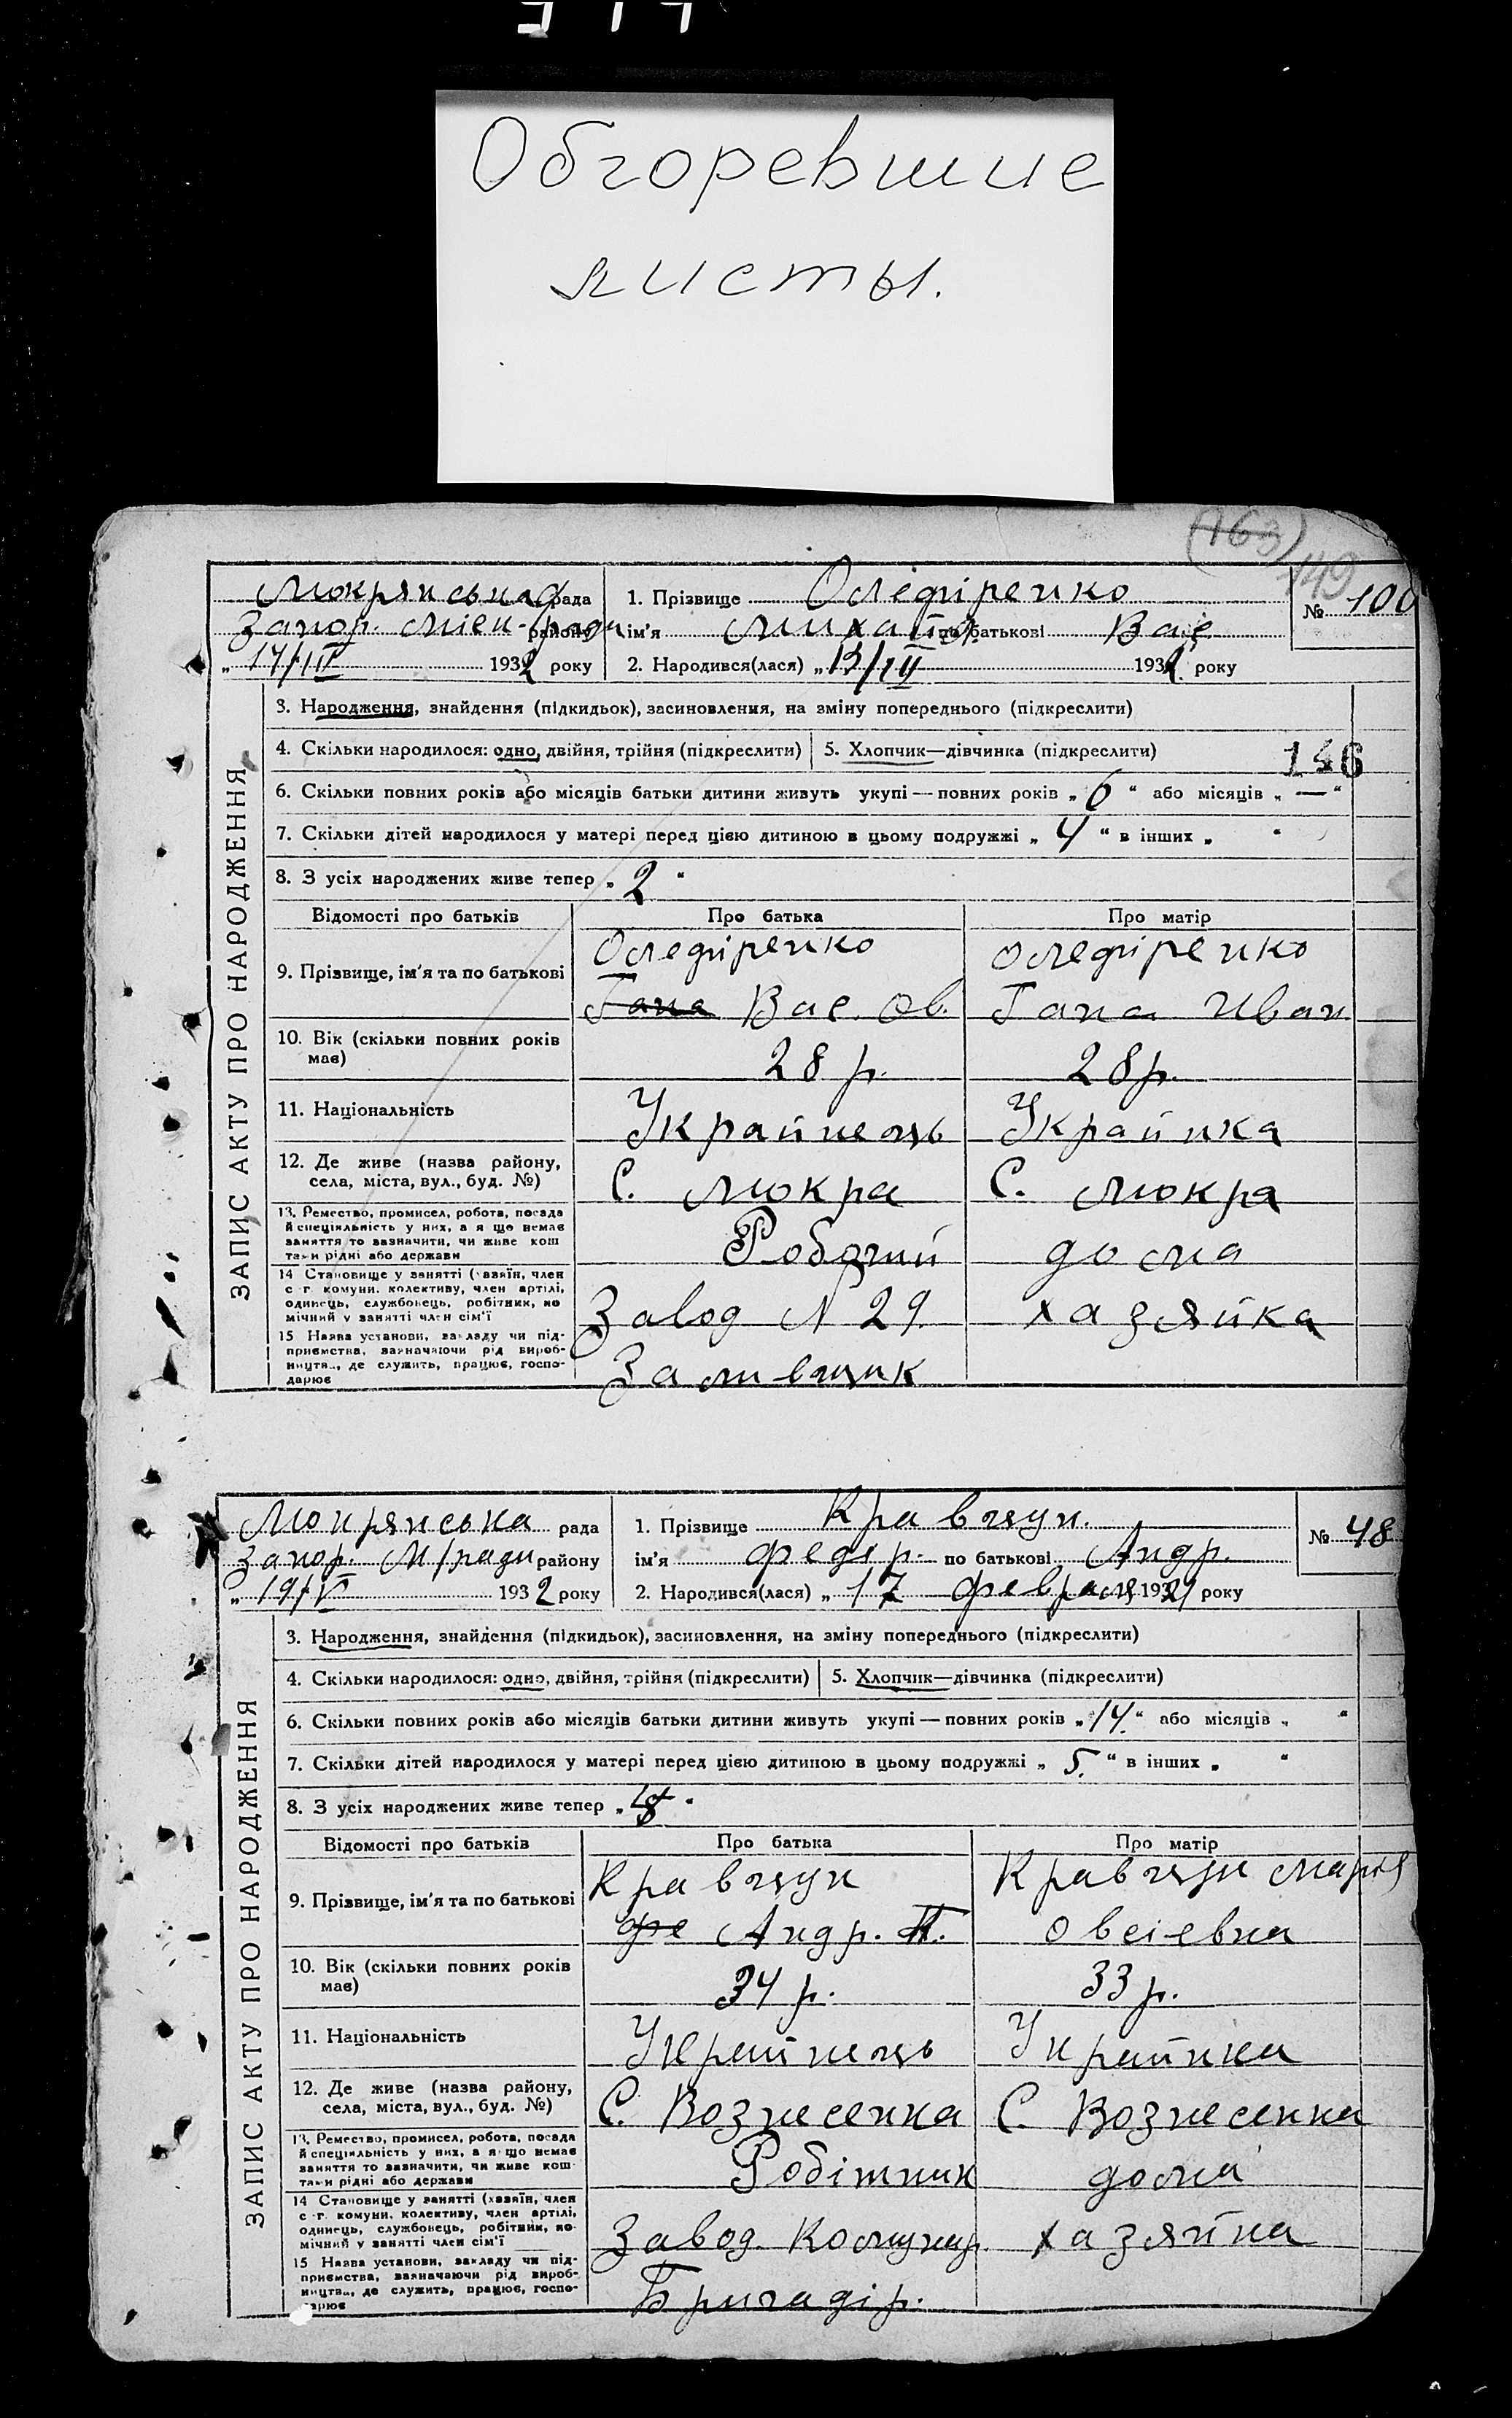 Обгоревшие
листы.
(163)
149
Мокрянська рада
1. Прізвище Олефіренко
№ 100
Запор. Міськ-ради району
ім'я Михайл по батькові Вас
„ 17/III 1932 року
2. Народився(лася) „ 13/III 1932 року
ЗАПИС АКТУ ПРО НАРОДЖЕННЯ
3. Народження, знайдення (підкидьок), засиновлення, на зміну попереднього (підкреслити)
4. Скільки народилося: одно, двійня, трійня (підкреслити) 5. Хлопчик—дівчинка (підкреслити)
146
6. Скільки повних років або місяців батьки дитини живуть укупі — повних років „ 6 “ або місяців „ — “
7. Скільки дітей народилося у матері перед цією дитиною в цьому подружжі „ 4 “ в інших „ “
8. З усіх народжених живе тепер „ 2 “
Відомості про батьків Про батька Про матір
9. Прізвище, ім'я та по батькові
Олефіренко
Гана Вас. Ов.
Олефіренко
Гана Иван
10. Вік (скільки повних років має)
28 р. 28 р.
11. Національність
Украйнець Украйнка
12. Де живе (назва району, села, міста, вул., буд. №)
С. Мокра С. Мокра
13. Ремество, промисел, робота, посада
й спеціяльність у них, а якщо немає
заняття то зазначити, чи живе кош
тами рідні або держави
Робочий дома
14 Становище у занятті (хазяїн, член
с-г комуни, колективу, член артілі,
одинець, службовець, робітник, по
мічний у занятті член сім'ї
Завод N 29. хазяйка
15 Назва установи, закладу чи під-
приємства, зазначаючи рід вироб-
ництва, де служить, працює, госпо-
дарює
Заливщик
Мокрянська рада
1. Прізвище Кравчун.
№ 48
Запор. М/ради району
ім'я Федір. по батькові Андр.
„ 19/V 1932 року
2. Народився(лася) „ 17 февраля 1929 року
ЗАПИС АКТУ ПРО НАРОДЖЕННЯ
3. Народження, знайдення (підкидьок), засиновлення, на зміну попереднього (підкреслити)
4. Скільки народилося: одно, двійня, трійня (підкреслити) 5. Хлопчик—дівчинка (підкреслити)
6. Скільки повних років або місяців батьки дитини живуть укупі — повних років „ 14. “ або місяців „ “
7. Скільки дітей народилося у матері перед цією дитиною в цьому подружжі „ 5. “ в інших „ “
8. З усіх народжених живе тепер „ “
Відомості про батьків Про батька Про матір
9. Прізвище, ім'я та по батькові
Кравчун
Фе Андр. П.
Кравчун Мария
Овсіевна
10. Вік (скільки повних років має)
34 р. 33 р.
11. Національність
Украйнець Украйнка
12. Де живе (назва району, села, міста, вул., буд. №)
С. Вознесенка С. Вознесенка
13. Ремество, промисел, робота, посада
й спеціяльність у них, а якщо немає
заняття то зазначити, чи живе кош
тами рідні або держави
Робітник дома
14 Становище у занятті (хазяїн, член
с-г комуни, колективу, член артілі,
одинець, службовець, робітник, по
мічний у занятті член сім'ї
Завод. Комунар. хазяйка
15 Назва установи, закладу чи під-
приємства, зазначаючи рід вироб-
ництва, де служить, працює, госпо-
дарює
Бригадір.